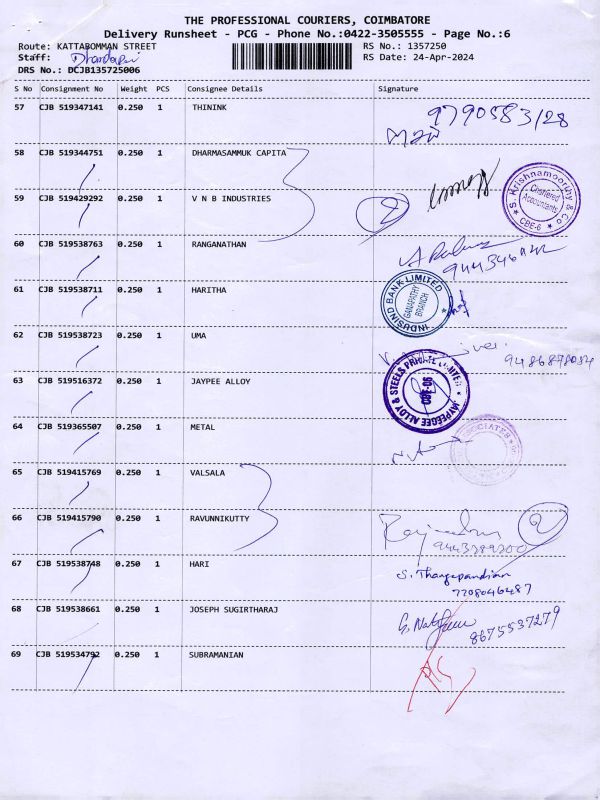 THE PROFESSIONAL COURIERS, COIMBATORE
Delivery Runsheet - PCG - Phone No.:0422-3505555 - Page No.:6
Route: KATTABOMMAN STREET
RS No.: 1357250
Staff:
RS Date: 24-Apr-2024
DRS No.: DCJB135725006
S No Consignment No Weight PCS Consignee Details Signature
57 CJB 519347141 0.250 1 THININK
9790583/28
58 CJB 519344751 0.250 1 DHARMASAMMUK CAPITA
59 CJB 519429292 0.250 1 V N B INDUSTRIES
2
S. Krishnamoorthy & Co
Chartered
Accountants
CBE-6
60 CJB 519538763 0.250 1 RANGANATHAN
61 CJB 519538711 0.250 1 HARITHA
INDUSIND BANK LIMITED
GANAPATHY
BRANCH
62 CJB 519538723 0.250 1 UMA
9486878034
63 CJB 519516372 0.250 1 JAYPEE ALLOY
JAYPEEGEE ALLOY & STEELS PRIVATE LIMITED
CBE-06
64 CJB 519365507 0.250 1 METAL
65 CJB 519415769 0.250 1 VALSALA
66 CJB 519415790 0.250 1 RAVUNNIKUTTY
2
9443289200
67 CJB 519538748 0.250 1 HARI
S. Thangapandian
7208046487
68 CJB 519538661 0.250 1 JOSEPH SUGIRTHARAJ
8675537279
69 CJB 519534792 0.250 1 SUBRAMANIAN